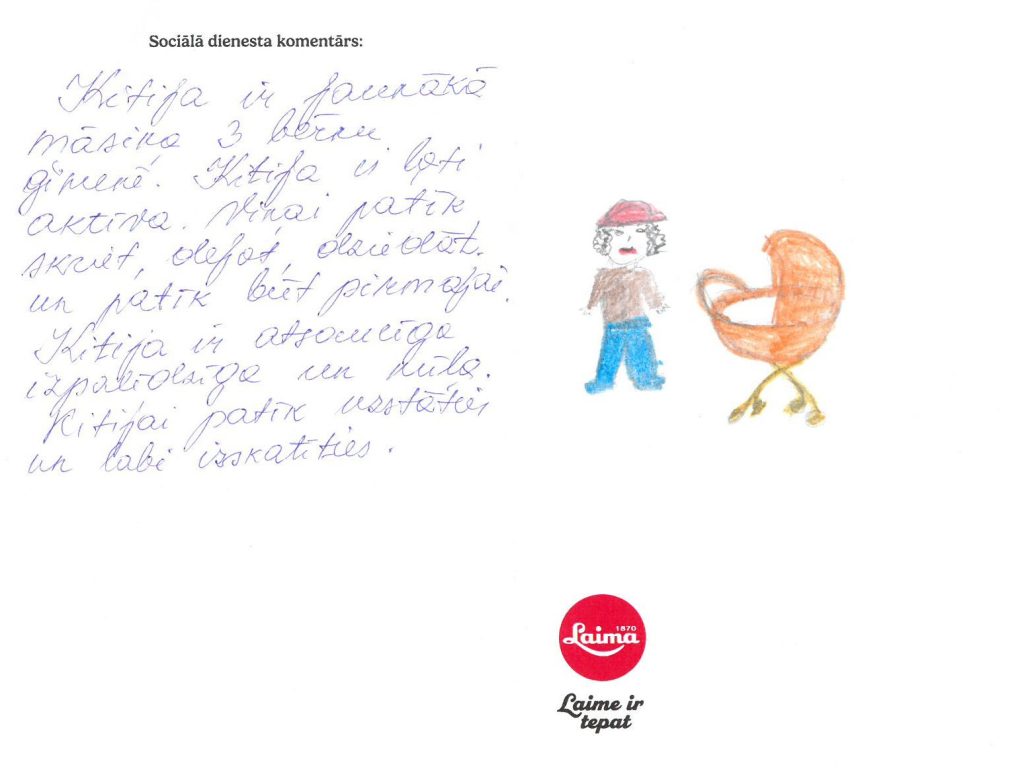 Sociālā dienesta komentārs:
Kitija ir jaunākā
māsiņa 3 bērnu
ģimenē. Kitija ir ļoti
aktīva. Viņai patīk
skriet, dejot, dziedāt.
un patīk būt pirmajai.
Kitija ir atsaucīga
izpalīdzīga un mīļa.
Kitijai patīk uzstāties
un labi izskatīties.
1870
Laima
Laime ir
tepat